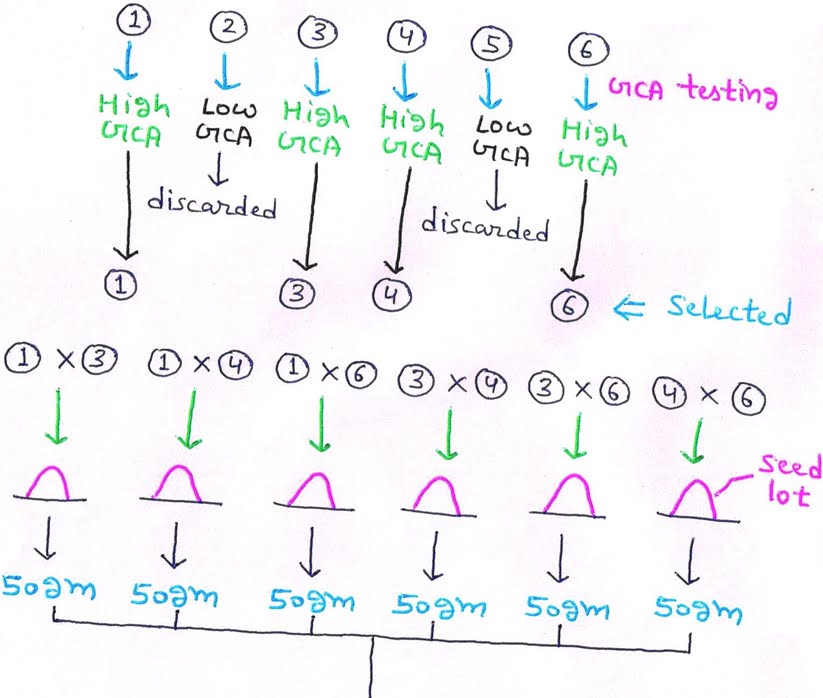 1 2 3 4 5 6
GCA testing
High GCA
Low GCA
High GCA
High GCA
Low GCA
High GCA
discarded
discarded
1 3 4 6 ⇐ Selected
1 × 3 1 × 4 1 × 6 3 × 4 3 × 6 4 × 6
Seed
lot
50gm 50gm 50gm 50gm 50gm 50gm